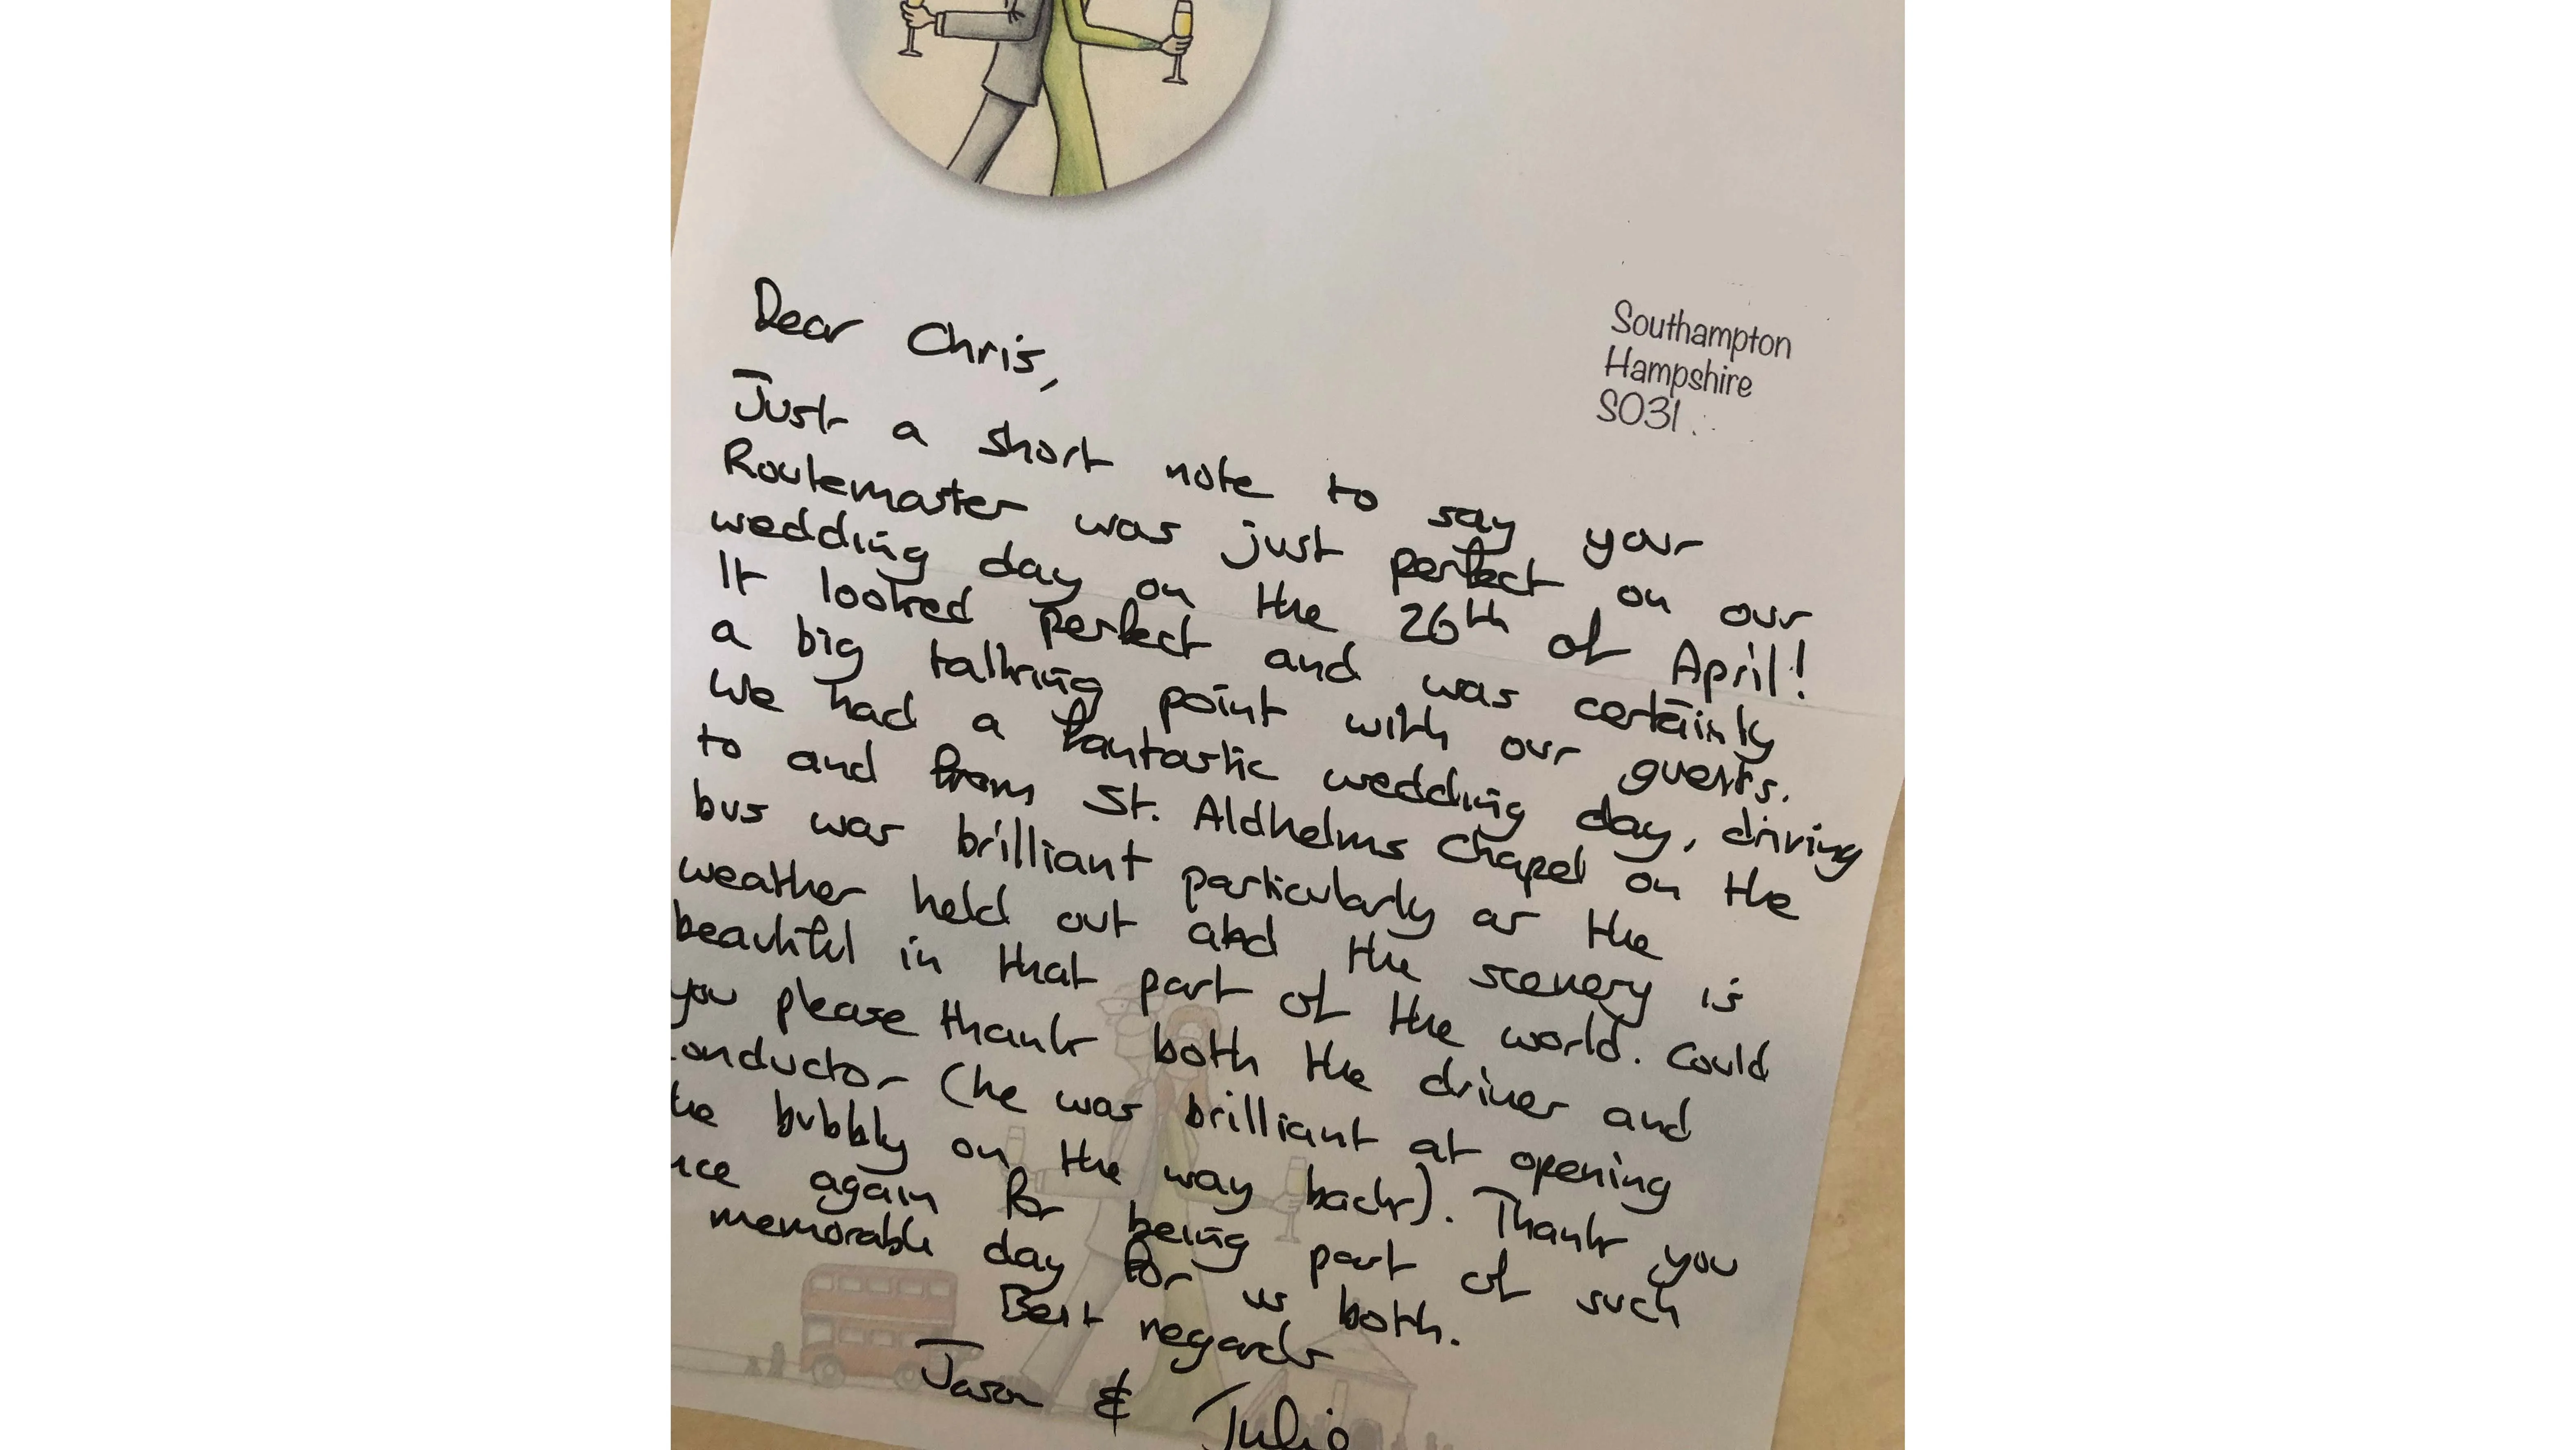 Southampton
Hampshire
SO31
Dear Chris,
Just a short note to say your
Routemaster was just perfect on our
wedding day on the 26th of April!
It looked perfect and was certainly
a big talking point with our guests.
We had a fantastic wedding day, driving
to and from St. Aldhelms Chapel on the
bus was brilliant particularly as the
weather held out and the scenery is
beautiful in that part of the world. Could
you please thank both the driver and
onductor (he was brilliant at opening
he bubbly on the way back). Thank you
nce again for being part of such
memorable day for us both.
Best regards
Jason &